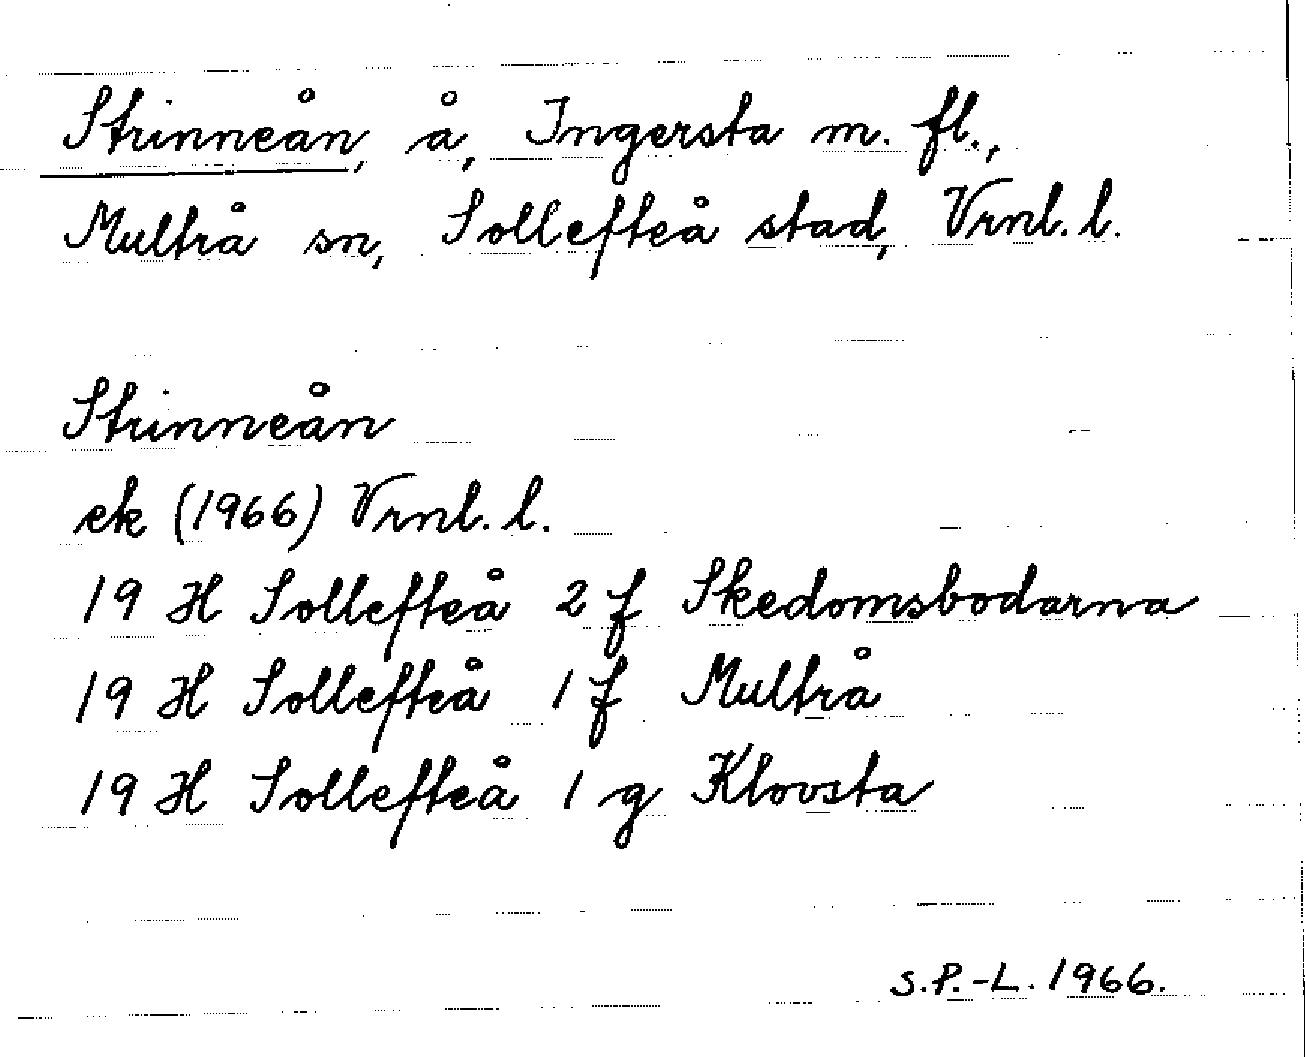 Strinneån, å, Ingersta m. fl.,
Multrå sn, Sollefteå stad, Vrnl. l.
Strinneån
ek (1966) Vrnl. l.
19 H Sollefteå 2 f Skedomsbodarna
19 H Sollefteå 1 f Multrå
19 H Sollefteå 1 g Klovsta
S.P.-L. 1966.